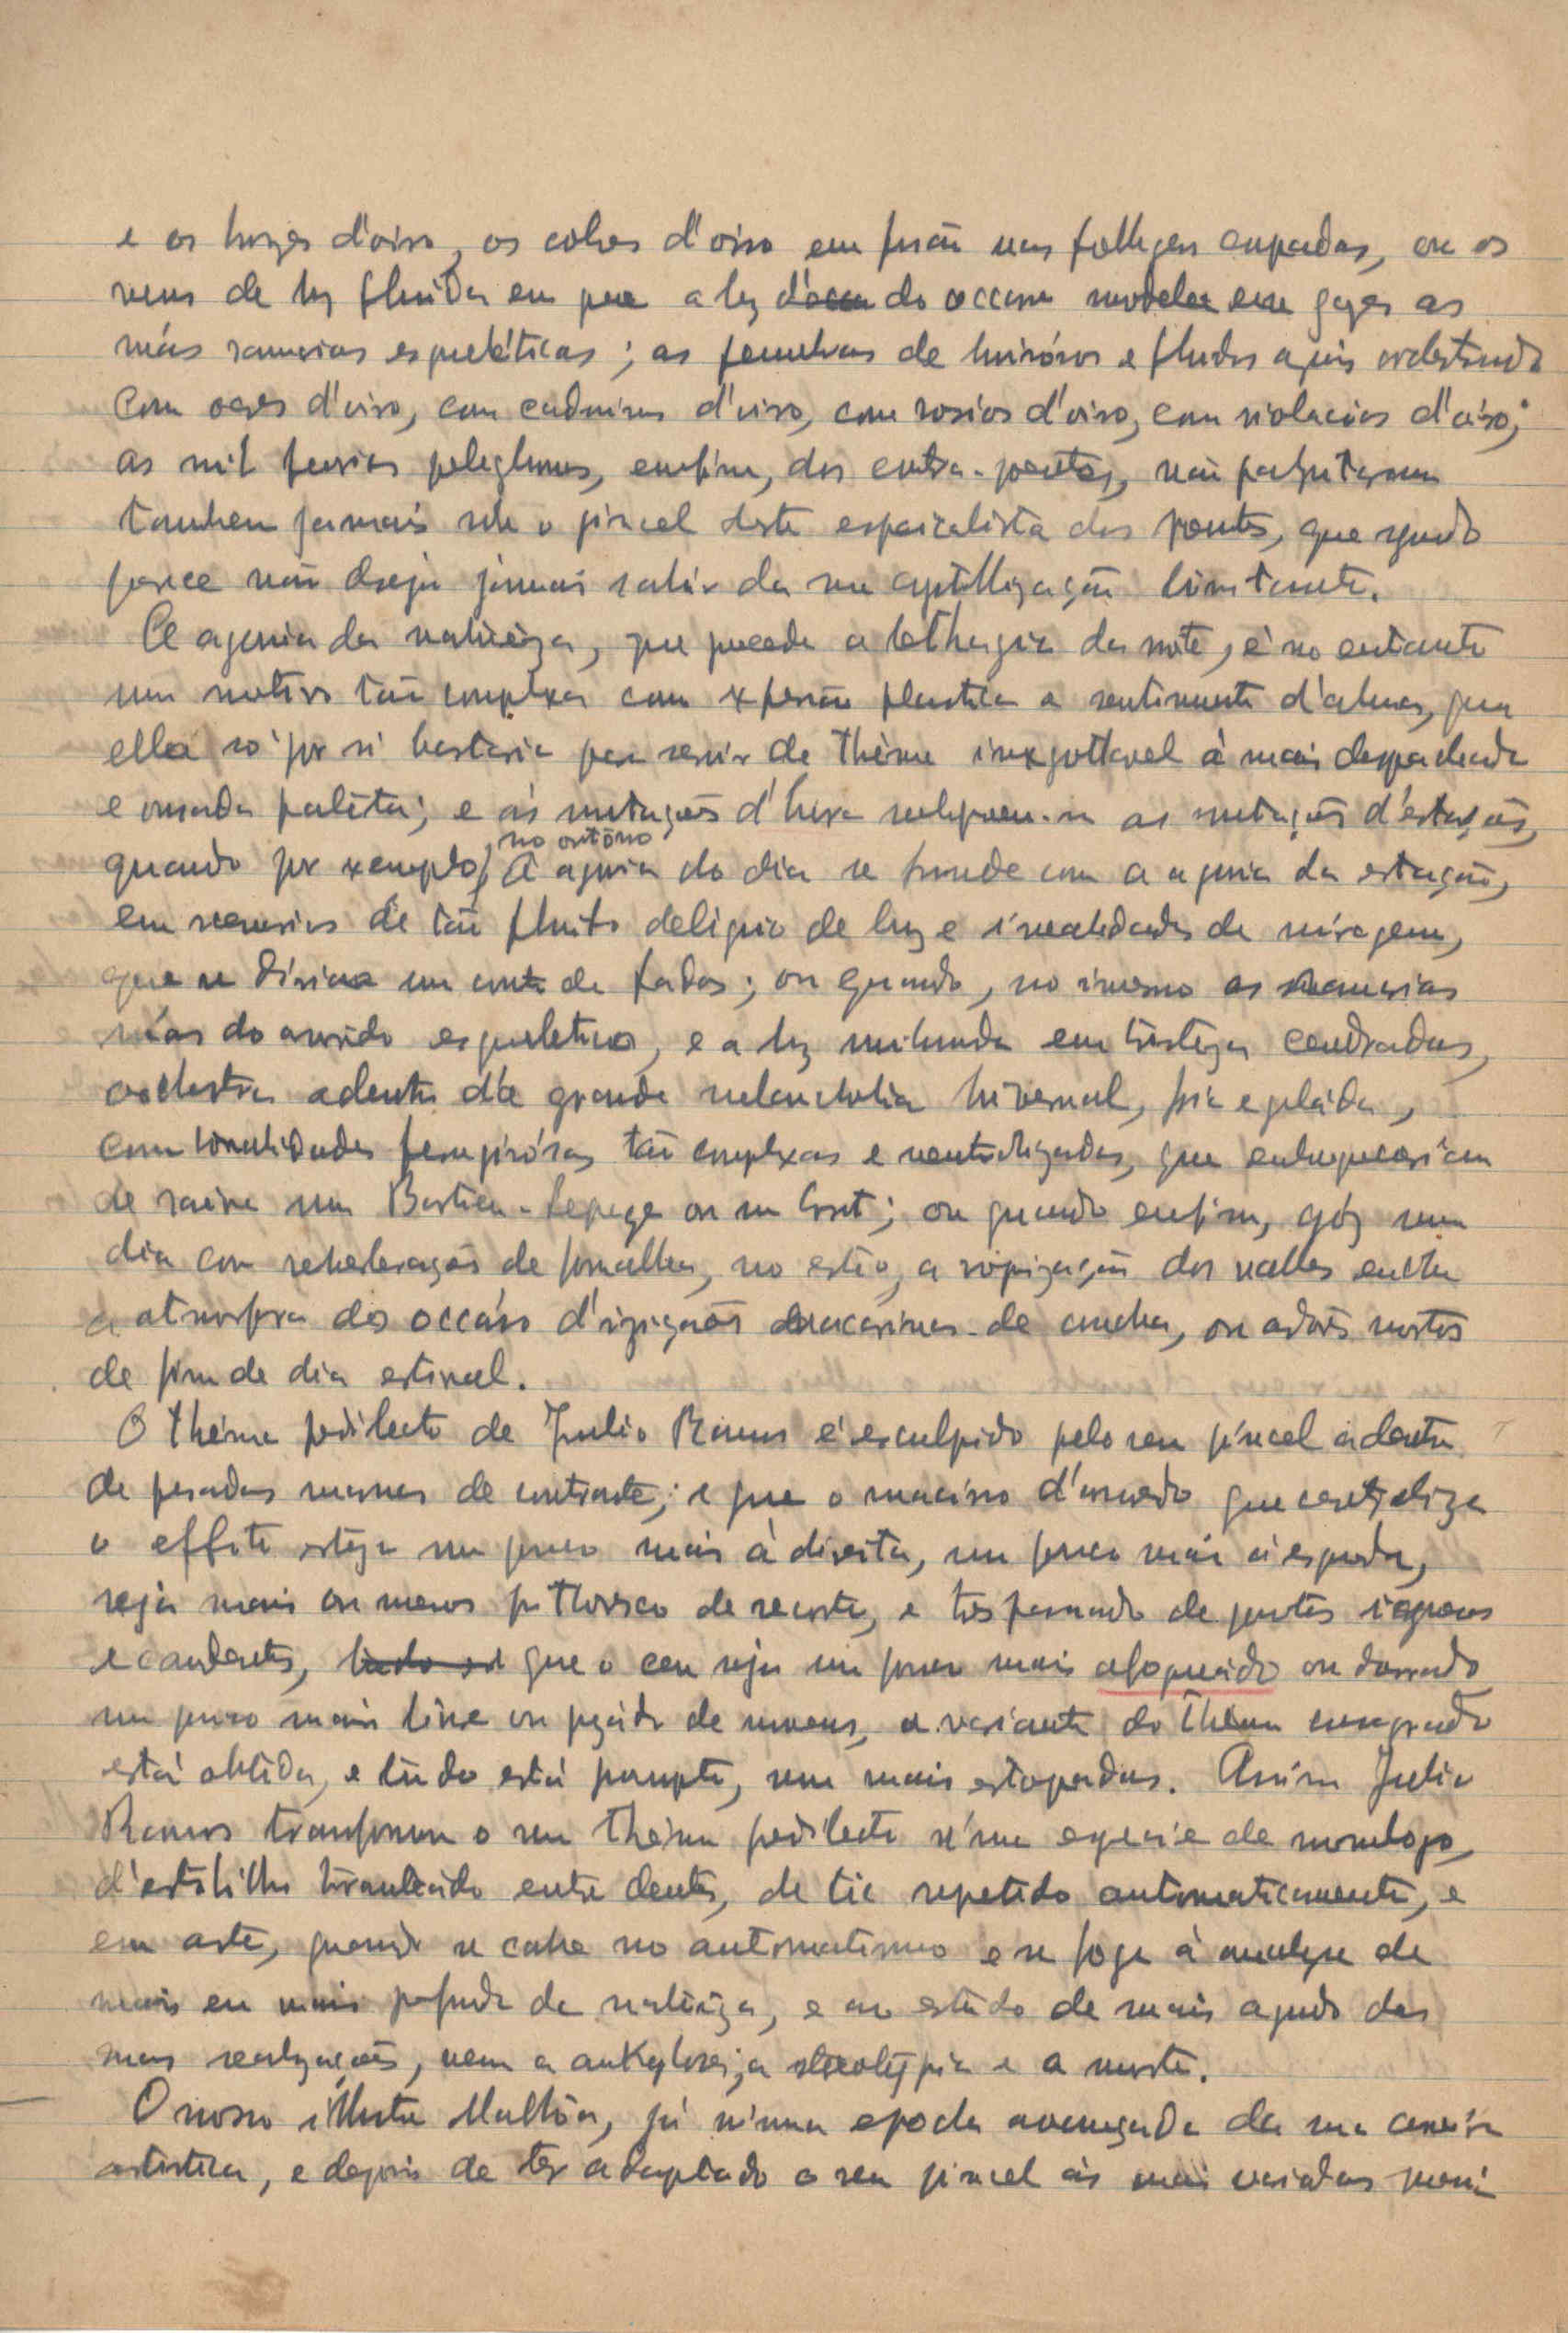 e os d'oiro, os cobres d'oiro em fusão nas folhagens, ou os
veus de luz fluida em que a luz do occaso modela em gazes as
suas ramarias esqueléticas; as penumbras de e fluidos orchestrando
com ocres d'oiro, com cadmiuns d'oiro, com rosios d'oiro, com violacios d'oiro;
as mil, emfim, dos contra-poentes, não palpitaram
tambem jamais sob o pincel deste especialista dos poentes, que segundo
parece não deseja jamais sahir da sua limitante.
A agonia da natureza, que precede a lethargia da noite, é no entanto
um motivo tão complexo com expressão plastica e sentimento d'alma, que
ella só por si bastaria para servir de thème inexgottavel à mais
e ousada palêta; e ás mutações d'hora as mutações d'estações,
quando por exemplo, no outôno a agonia do dia se funde com a agonia da estação,
em scenarios de tão fluido deliquio de luz e irrealidades de miragem,
que se diria um conto de fadas; ou quando, no inverno as ramarias
nuas do arvoredo esqueletico, e a luz em tristezas cendradas,
orchestra adentro d'a grande melancholia hivernal, fria e gelida,
com tonalidades tão complexas e neutralizadas, que enlouqueceriam
de raiva um Bastien-Lepage ou um Corot; ou quando emfim, após um
dia com reverberações de fornalha, no estio, a dos valles enche
a atmosfera dos occasos d'irizações nacarinas de concha, ou
de fim de dia estival.
O thème predilecto de Julio Ramos é esculpido pelo seu pincel adentro
de pesadas massas de contraste; e que o macisso d'arvoredo que centraliza
o effeito esteja um pouco mais à direita, um pouco mais á esquerda,
seja mais ou menos pittoresco de recorte, e trespassado de pontos igneos
e candentes, que o ceu seja um pouco mais afogueado ou dourado
um pouco mais livre ou pejado de nuvens, a variante do thème consagrado
está obtida, e tudo está prompto, sem mais estopadas. Assim Julio
Ramos transformou o seu thème predilecto n'uma especie de monologo,
d'estribilho trauteado entre dentes, de tic repetido automaticamente, e
em arte, quando se cahe no automatismo e se foge à analyse de
mais em mais profunda da natureza, e ao estudo de mais agudo das
suas realizações, vem a ankylose, a stereotypia e a morte.
O nosso illustre Malhôa, já n'uma epoca avançada da sua carreira
artistica, e depois de ter adaptado o seu pincel ás mais variadas